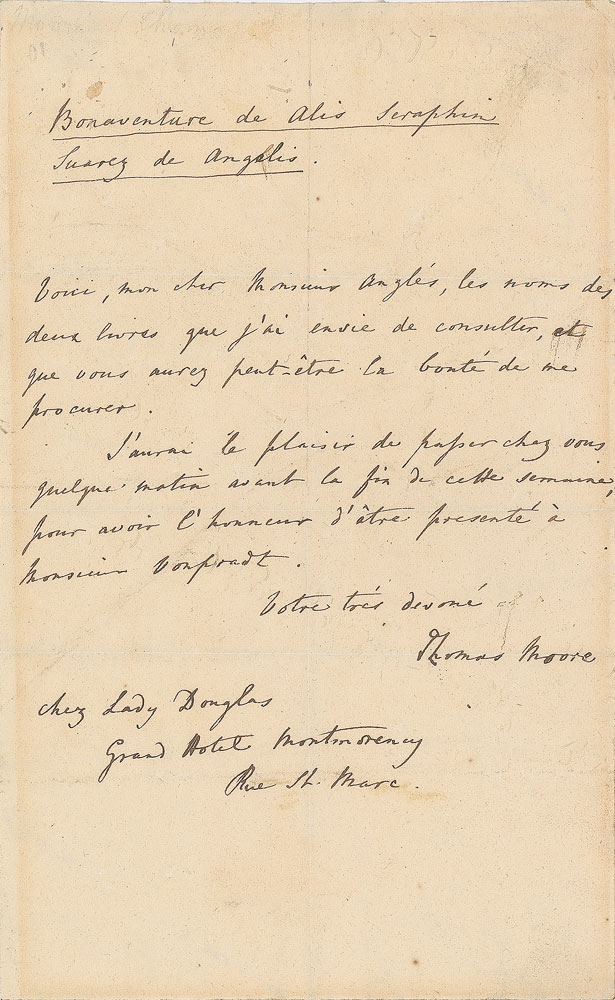 Bonaventure de Alis Seraphin
Suarez de Angelis.
Voici, mon cher Monsieur Anglés, les noms des
deux livres que j'ai envie de consulter, et
que vous aurez peut-être la bonté de me
procurer.
J'aurai le plaisir de passer chez vous
quelque matin avant la fin de cette semaine,
pour avoir l'honneur d'âtre presenté à
Monsieur
Votre trés devoué
Thomas Moore
chez Lady Douglas
Grand Hotel Montmorency
Rue St. Marc.